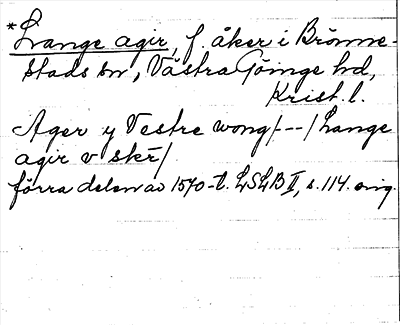 *Lange agir, f. åker i Brönne-
stads sn, Västra Göinge hd,
Krist. l.
Ager y Vestre wong/--/Lange
agir v skr̄/
förra delen av 1570-t. LSLB II, s. 114. orig.